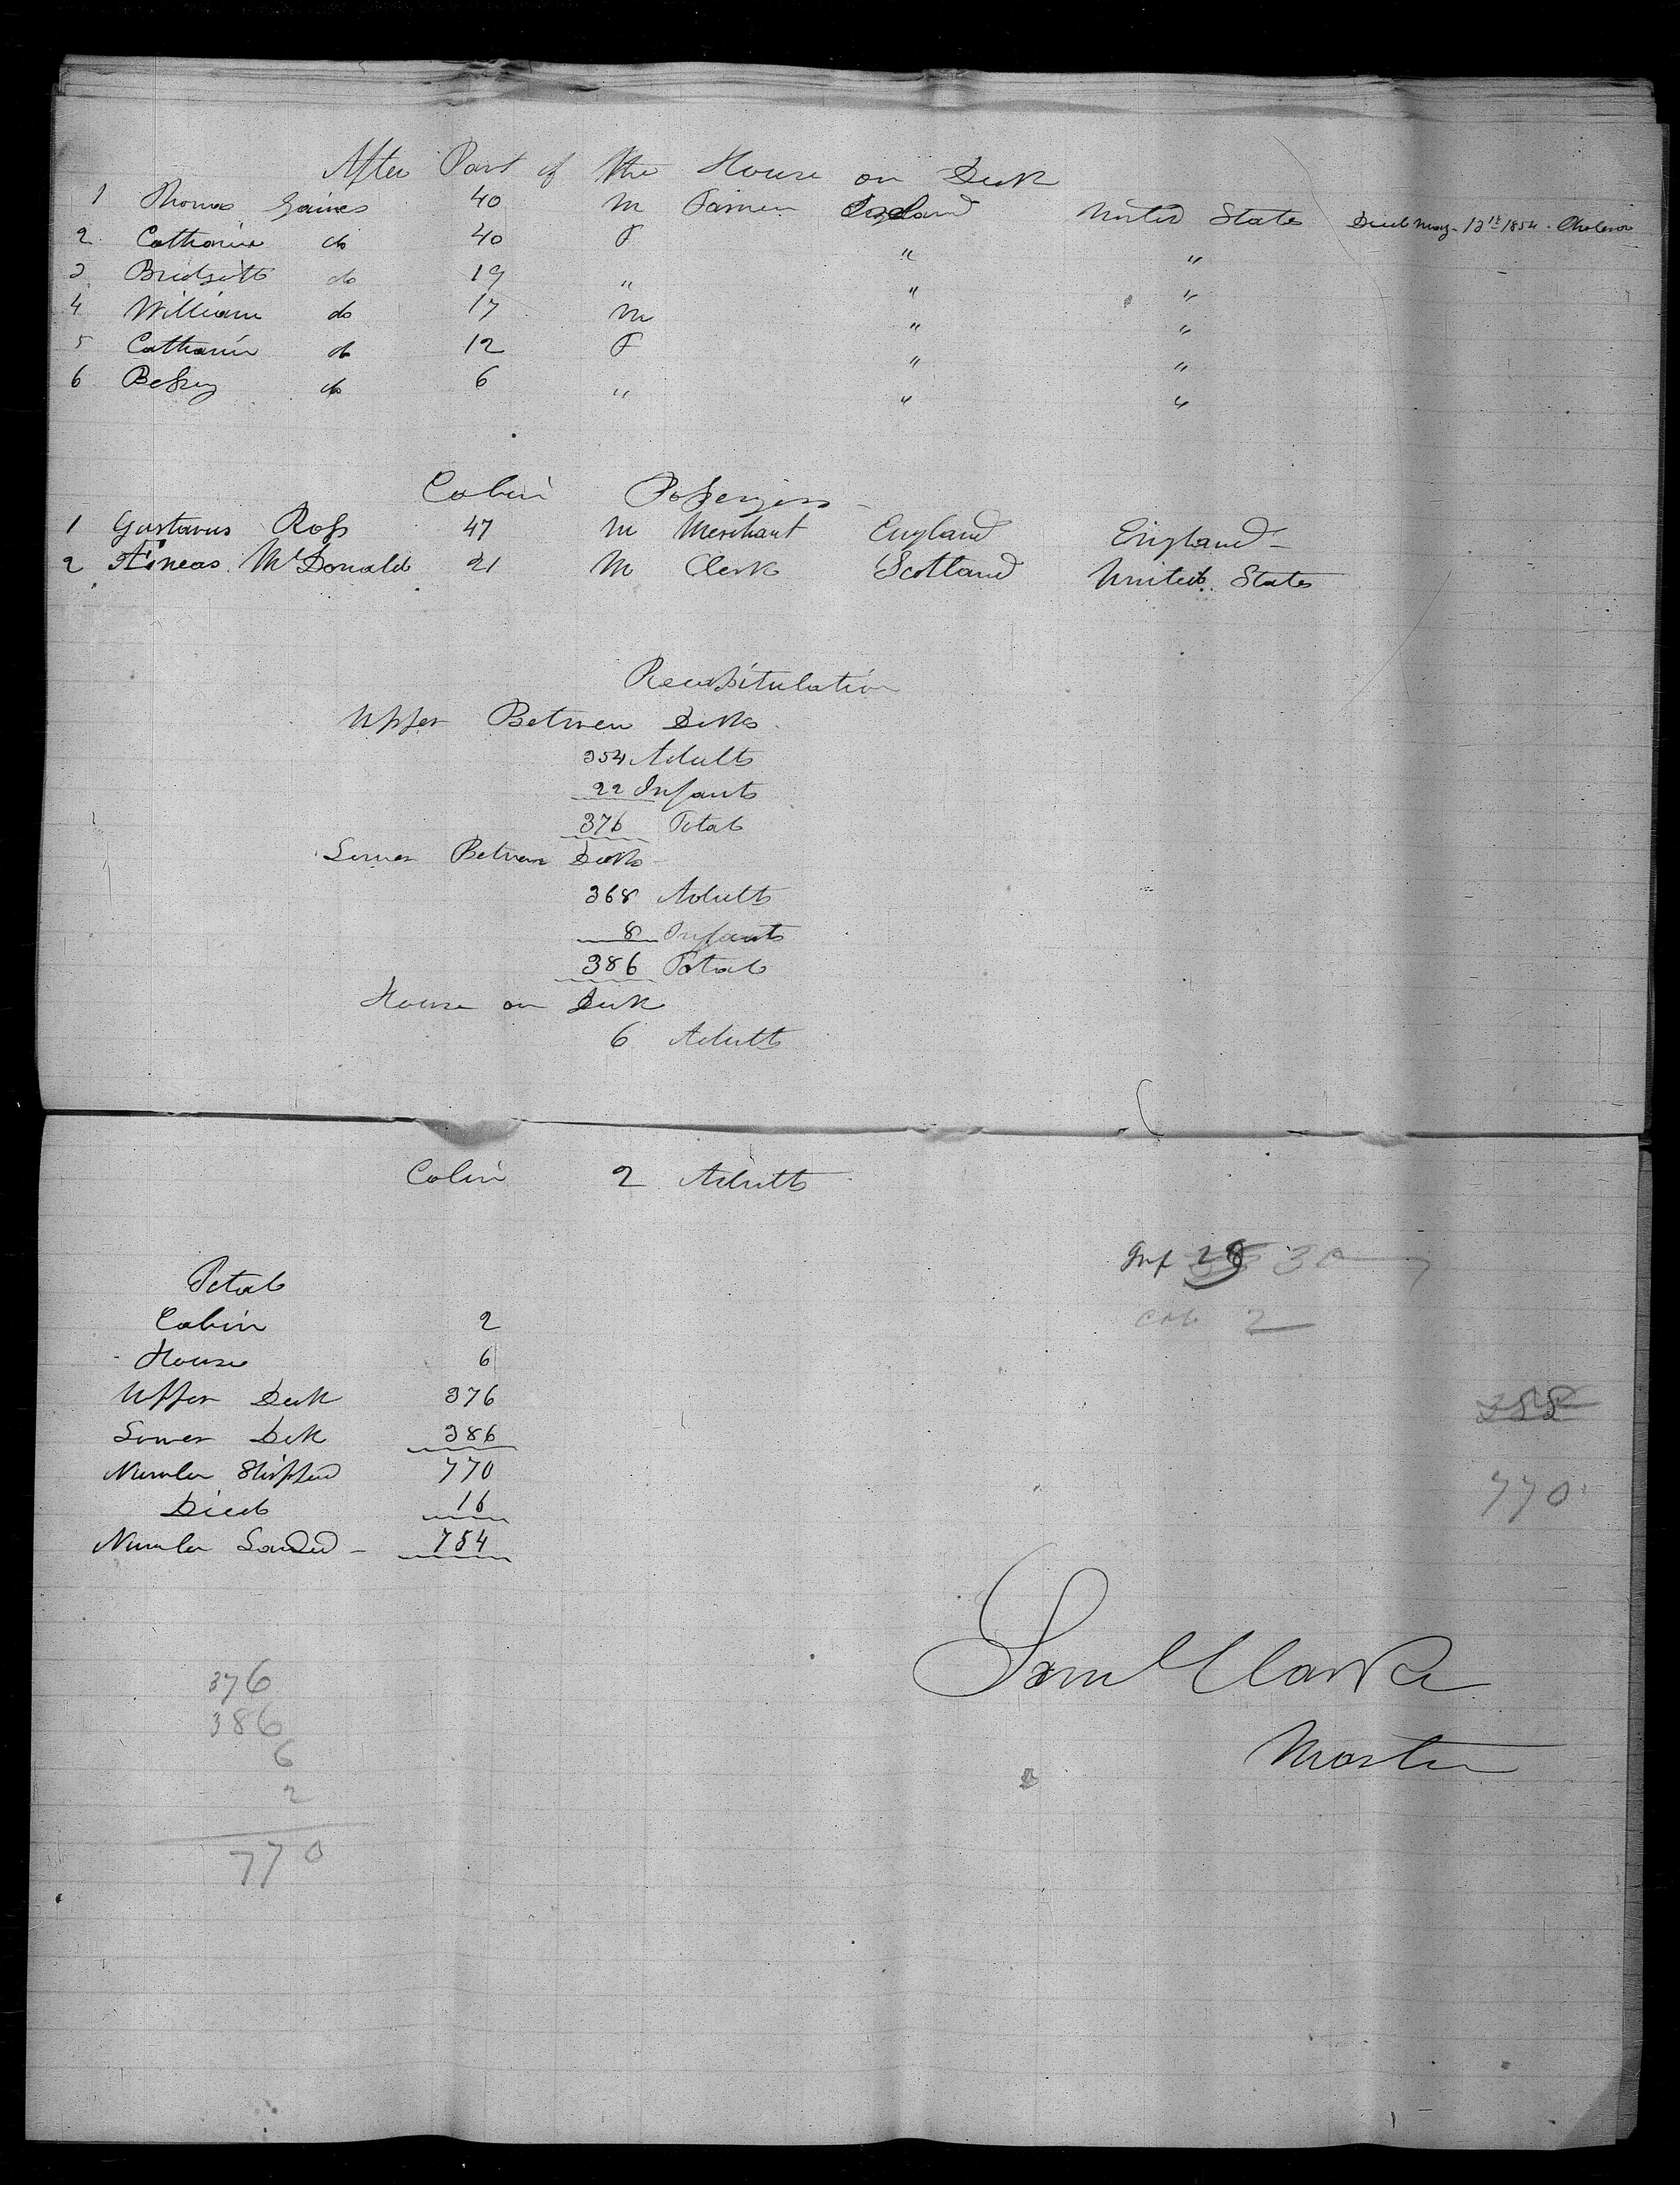 After Part of the House on Deck
1 Thomas Gaines 40 M Farmer England United States Died May 12th 1854 Cholera
2 Catharine do 40 F " "
3 Bridgett do 19 " " "
4 William do 17 M " "
5 Catharin do 12 F " "
6 Betsey do 6 " " "
Cabin Passengers
1 Gustavus Ross 47 M Merchant England England
2 Æneas McDonald 21 M Clerk Scotland United States
Recapitulation
Upper Between Decks
354 Adults
22 Infants
376 Total
Lower Between Decks
368 Adults
8 Infants
386 Total
House on Deck
6 Adults
Cabin 2 Adults
Inf 28 30
Cab 2
Total
Cabin 2
House 6
Upper Deck 376
Lower Deck 386
Number Shipped 770
Died 16
Number Landed 754
388
770
Saml Clarke
Master
376
386
6
2
770